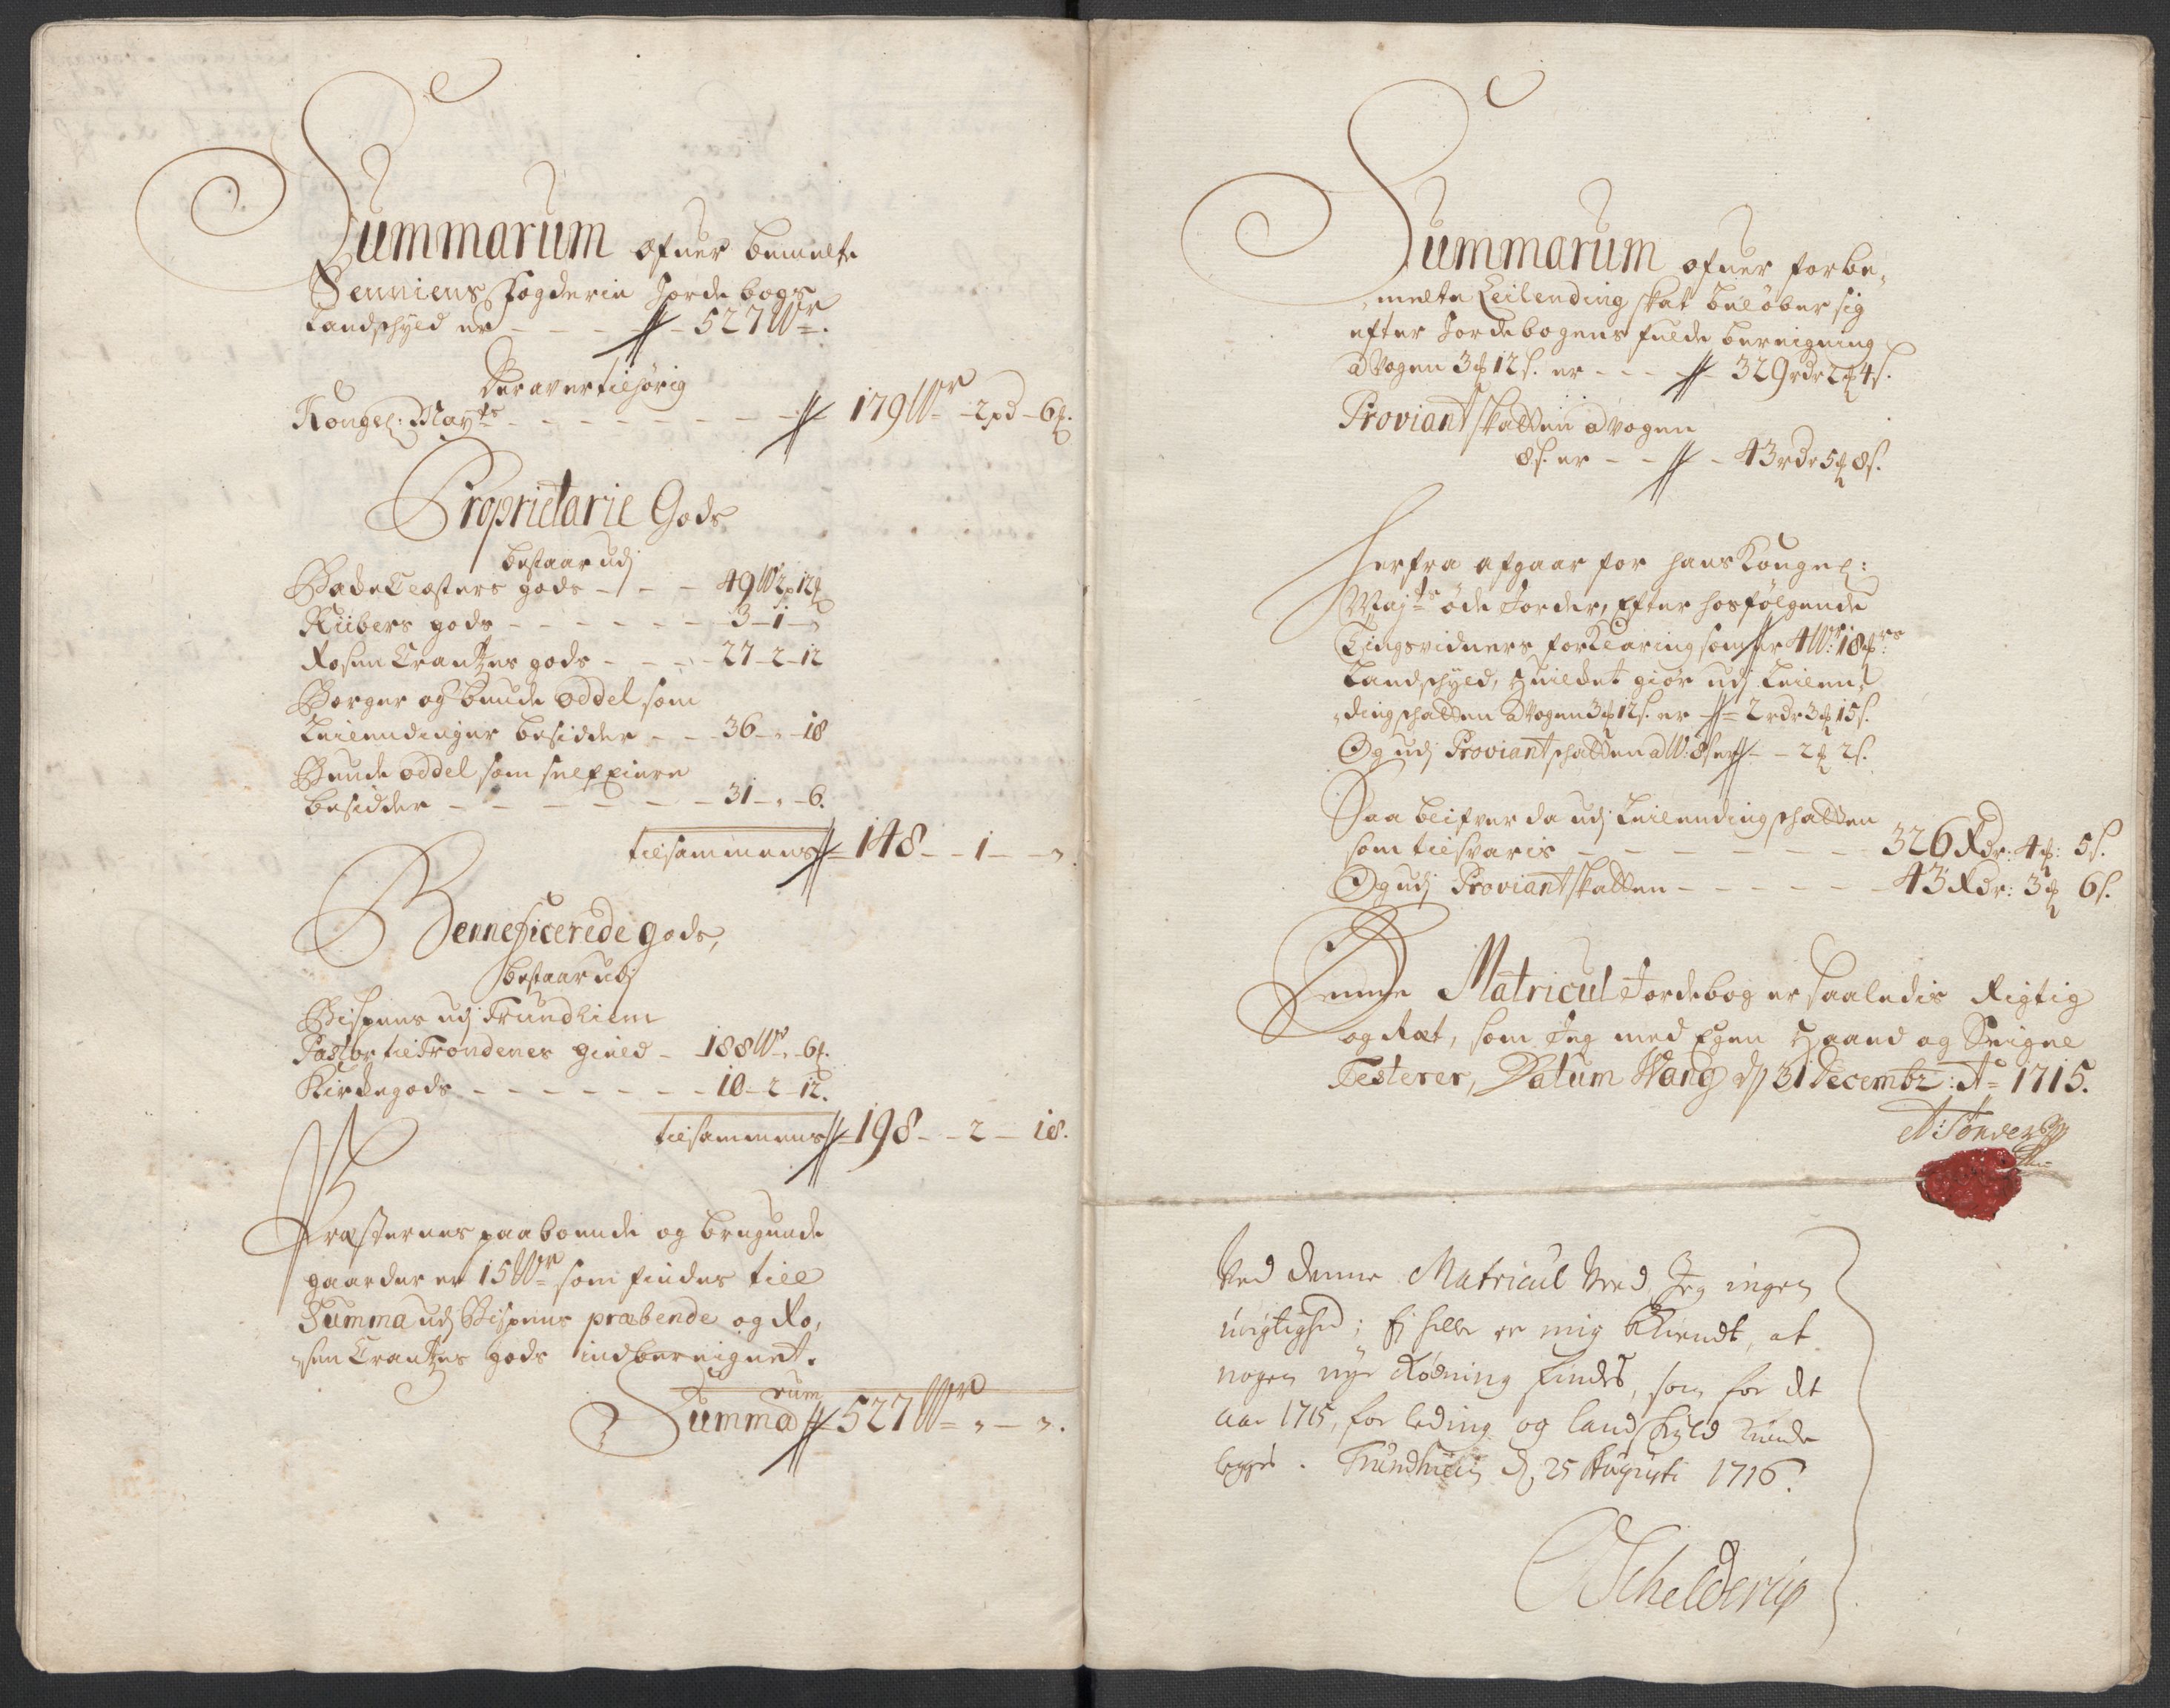 Summarum ofuer bemelte
Senniens Fogderie Jordebogs
Landschyld er - - - 527 W̳r.
Deraver tilhörig
Kongel: Mayts - - - - - - - 179 Wr - 2 pd - 6 ℔.
Proprietarie Gods
bestaar udj
Backeclosters gods - - - 49 W 2 p 12 ℔
Rübers gods - - - - - - 3 - 1 - "
Rosen Crantzes gods - - - 27 - 2 - 12
Borger og bunde oddel som
Leilendinger besidder - - 36 - " - 18
Bunde oddel som self Eiere
besidder - - - - - - 31 - " - 6.
tilsammens 148 - - 1 - - "
Benneficerede gods,
bestaar udj
Bispens udj Trundhiem
Pastor til Trondenes gield - 188 Wr - " - 6 ℔.
Kirkegods - - - - - - - 10 - 2 - 12.
tilsammens 198 - - 2 - 18.
Præsternes paaboende og brugende
gaarder er 15 Wr som findes till
Summa udj Bispens præbende og Ro,
sen Crantzes gods indbereignet.
Summarum 527 Wr " - ".
Summarum ofuer forbe,
melte Leilending skat belöber sig
efter Jordebogens fulde bereigning
a Wogen 3 ℔ 12 s. er - - - 329 rdr 2 ℔ 4 s.
Proviant skatten a Wogen
8 s. er - - - 43 rdr 5 ℔ 8 s.
Herfra afgaar for hans Kongel:
Majts öde Jorder, Efter hosfölgende
Tingsvidners forklaring som er 4 W: 18 ℔rs
Landschyld, Huilket giör udj Leilen,
ding schatten a Wogen 3 ℔ 12 s. er - 2 rdr 3 ℔ 15 s.
Og udj Proviant schatten a W: 8 s er - - 2 ℔ 2 s.
Saa blifver da udj Leilending schatten
som tilsvaris - - - - - - - - 326 Rdr: 4 ℔: 5 s.
Og udj Proviant skatten - - - - - 43 Rdr: 3 ℔ 6 s.
Denne Matricul Jordebog er saaledis Rigtig
og Ræt, som Jeg med Egen Haand og Seigne
Testerer, Datum Wang d 31 Decembr: Ao 1715.
A: Tönder
Ved denne Matricul veed Jeg ingen
urigtighed; Ej heller er mig bekiendt, at
nogen nye Rödning findes, som for det
aar 1715, for leding og landskyld kunde
legges. Trundhiem d, 25 Augusti 1716.
Schelderup